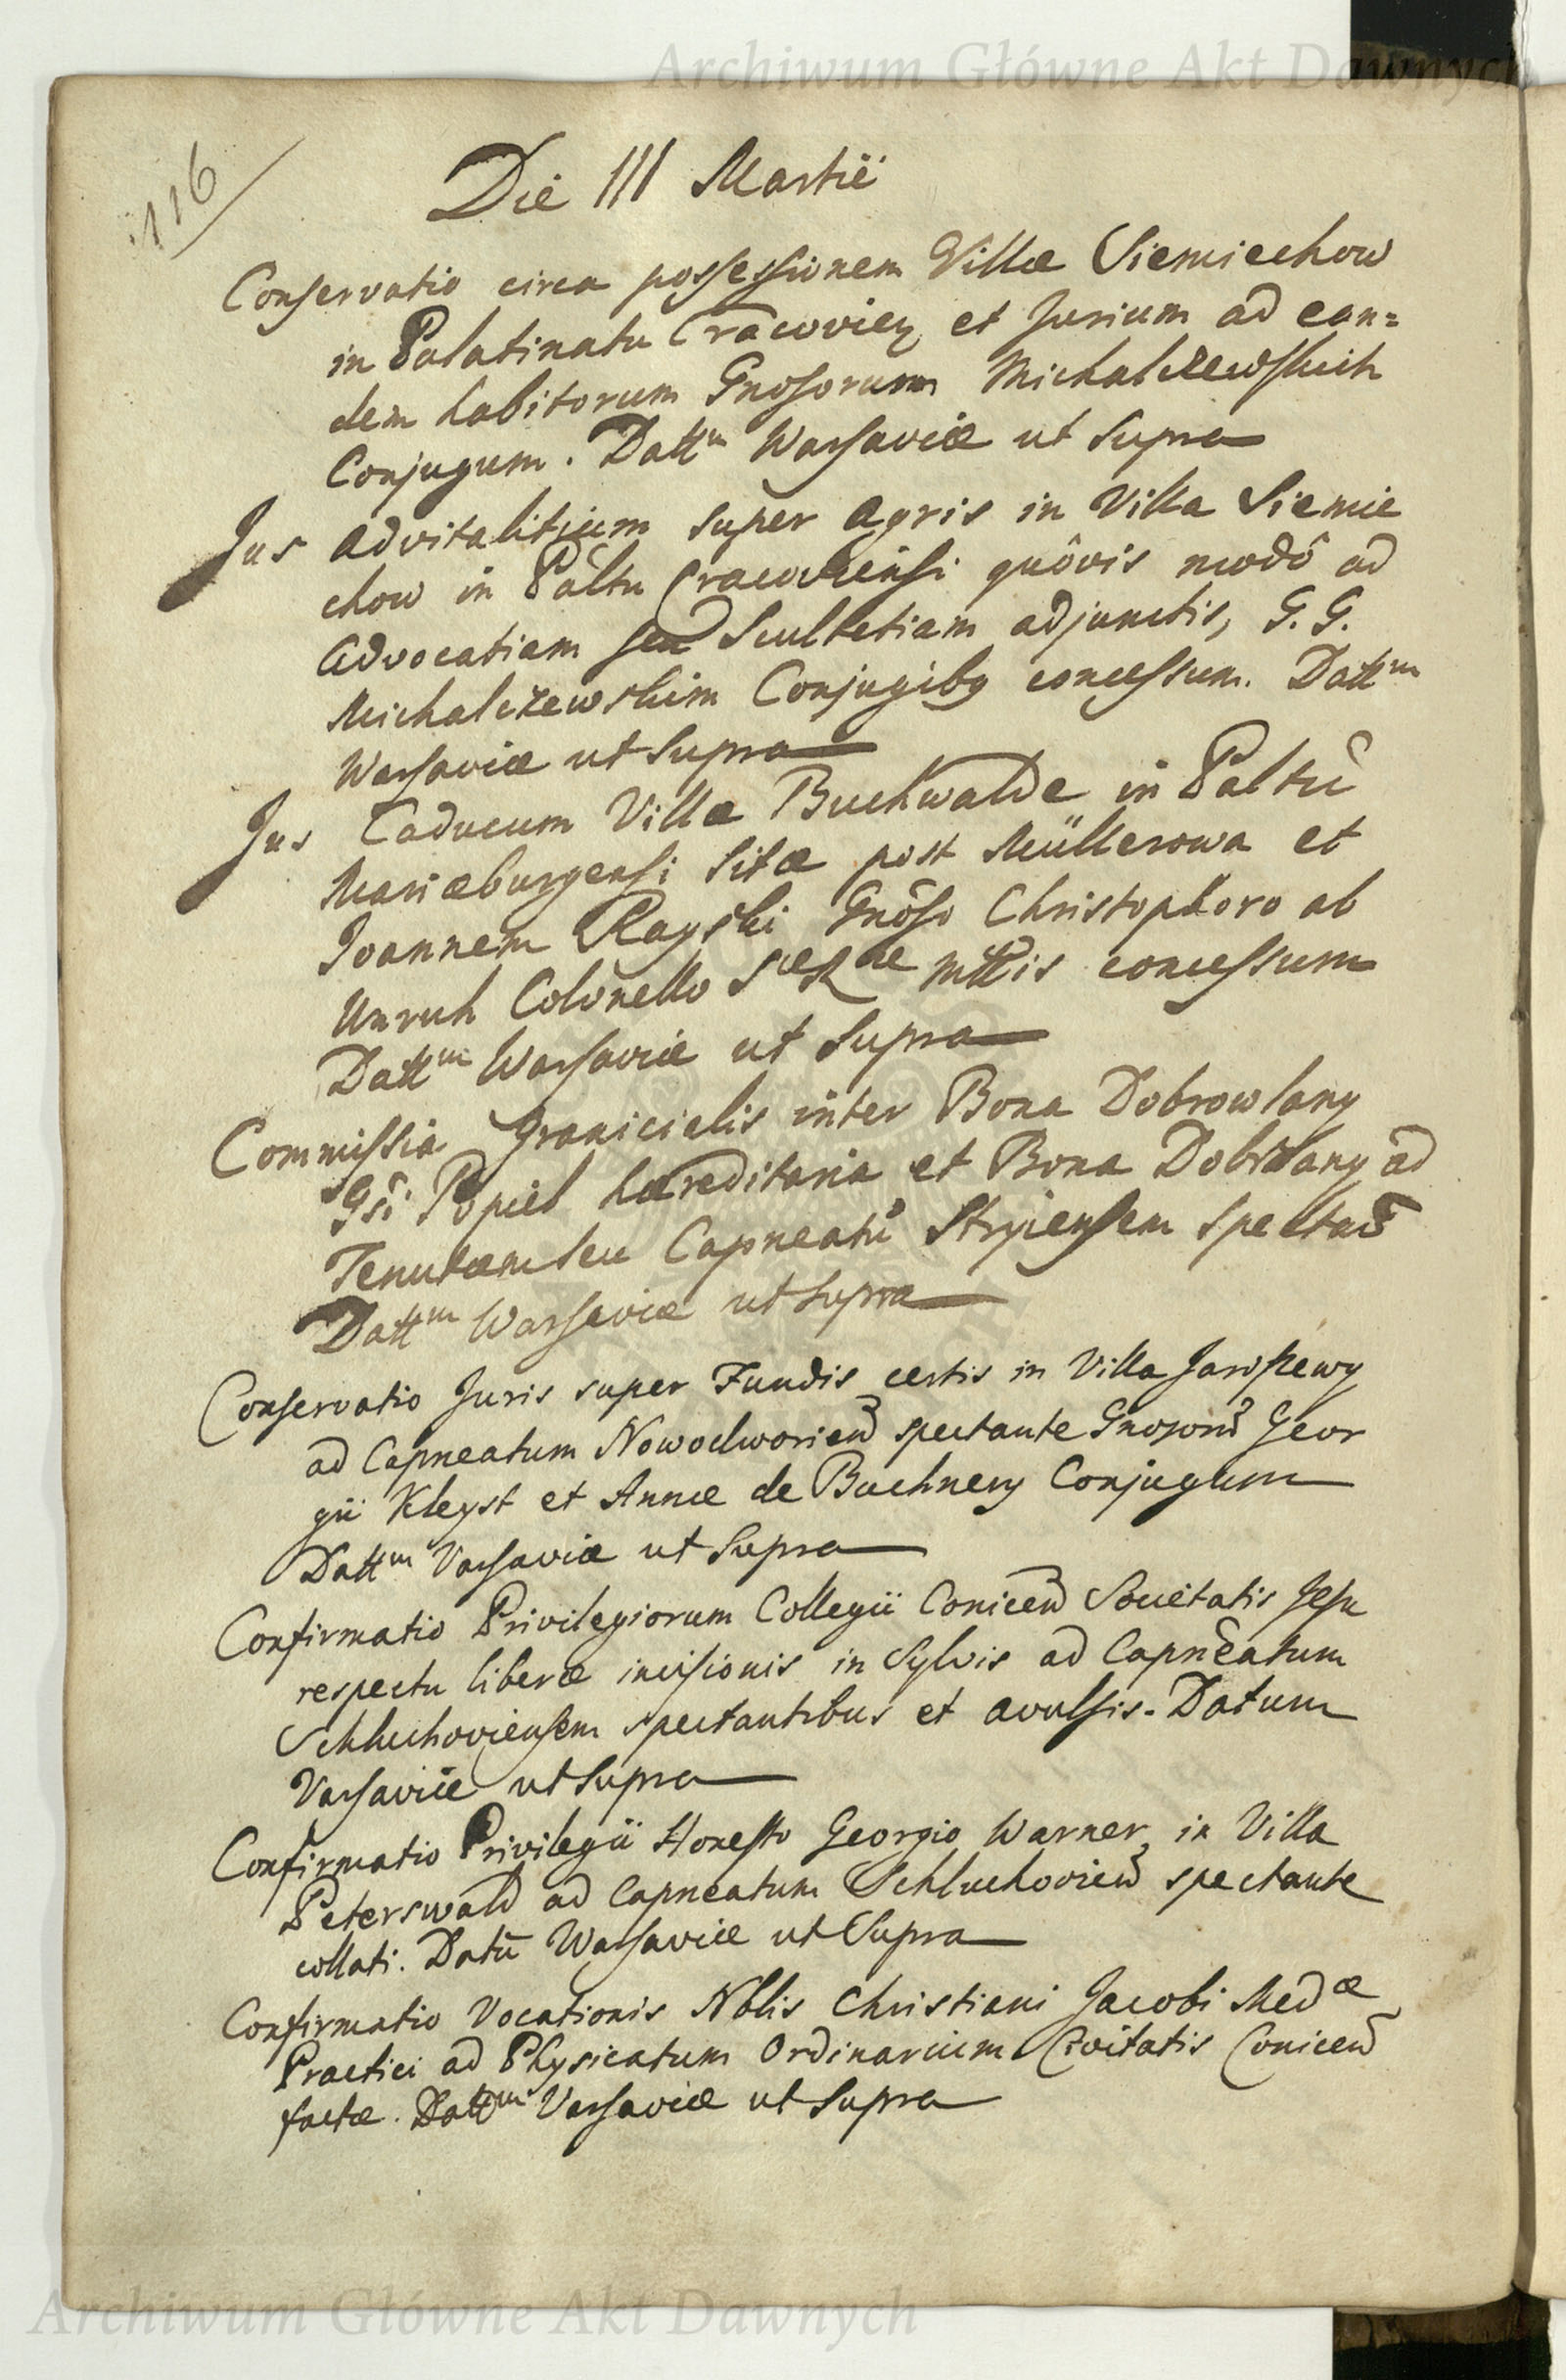 Archiwum Główne Akt Dawnych
116
Die III Martii
Conservatio circa possessionem Villæ Siemiechow
in Palatinatu Cracovien et Jurium ad ean=
dem habitorum Gnosorum Michalczewskich
Conjugum. Dattm Warsaviæ ut Supra
Jus advitalitium super agris in Villa Siemie
chow in Paltu Cracoviensi quôvis modô ad
Advocatiam seu Scultetiam adjunctis, G. G.
Michalczewskim Conjugibq concessum. Dattm
Warsaviæ ut Supra
Jus Caducum Villæ Buchwalde in Paltu
Mariæburgensi Sitæ post Müllerowa et
Joannem Rayski Gnoso Christophoro ab
Unruh Colonello SæRæ Mttis concessum
Dattm Warsaviæ ut Supra
Commissia Granicialis inter Bona Dobrowlany
Gsi Popiel hæreditaria et Bona Dobrolany ad
Tenutam seu Capneatu Stryiensem spectan
Dattm Warsaviæ ut Supra
Conservatio Juris super Fundis certis in Villa Jaroszewy
ad Capneatum Nowodworien spectante Gnosoru Geor
gii Kleyst et Annæ de Buchnery Conjugum
Dattm Varsaviæ ut Supra
Confirmatio Privilegiorum Collegii Conicen Societatis Jesu
respectu liberæ incisionis in Sylvis ad Capneatum
Schluchoviensem spectantibus et avulsis. Datum
Varsaviæ ut Supra
Confirmatio Privilegii Honesto Georgio Warner in Villa
Peterswald ad Capneatum Schluchovien spectante
collati. Datū Warsaviæ ut Supra
Confirmatio Vocationis Nblis Christiani Jacobi Medæ
Practici ad Physicatum Ordinarium Civitatis Conicen
factæ. Dattm Varsaviæ ut Supra
Archiwum Główne Akt Dawnych